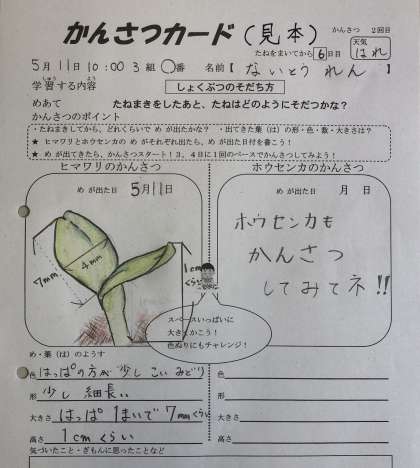 かんさつカード(見本)
かんさつ 2回目
たねをまいてから 6 日目
天気 はれ
5月11日10:00 3組 〇番 名前【ないとう れん】
学習する内容 しょくぶつのそだち方
がくしゅう ないよう
めあて たねまきをしたあと、たねはどのようにそだつかな?
かんさつのポイント
・たねまきしてから、どれくらいで めが出たかな? ・出てきた葉(は)の形・色・数・大きさは?
★ ヒマワリとホウセンカの めがそれぞれ出たら、め が出た日付を書こう!
★ め が出てきたら、かんさつスタート!3、4日に1回のペースでかんさつしてみよう!
ヒマワリのかんさつ
め が出た日 5月11日
7mm
4mm
1cmくらい
ホウセンカのかんさつ
め が出た日 月 日
ホウセンカも
かんさつ
してみてネ!!
スペースいっぱいに
大きくかこう!
色ぬりにもチャレンジ!
め・葉(は)のようす
色 はっぱの方が少しこいみどり
形 少し細長い
大きさ はっぱ1まいで7mmくらい
高さ 1cmくらい
色
形
大きさ
高さ
気づいたこと・ぎもんに思ったことなど